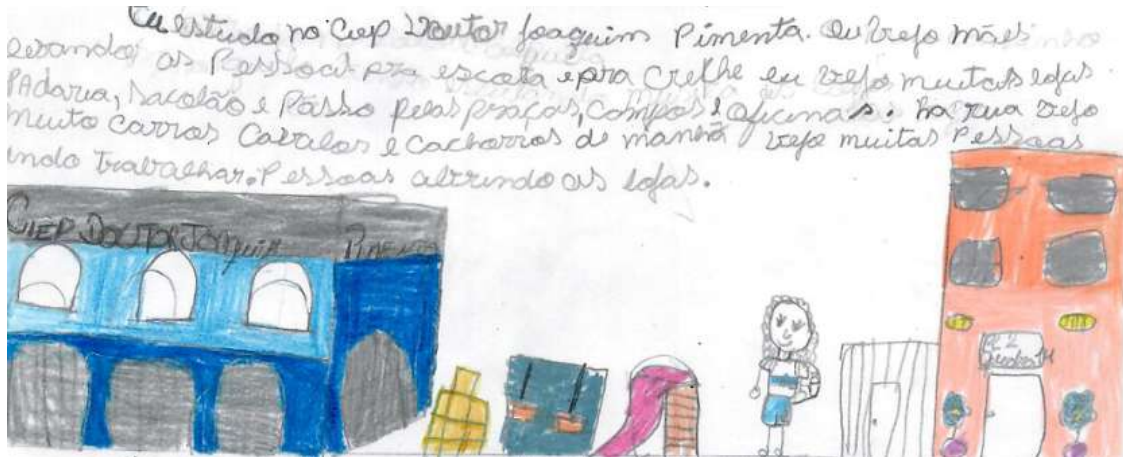 Eu estudo no Ciep Doutor Joaquim Pimenta. Eu vejo mães
levando as Pessoas pra escola e pra Crelhe eu vejo muitas lojas.
PAdaria, Sacolão e Pásso pelas praças, Campos e oficinas. na rua vejo
muito carros Cavalos e Cachorros de manhã vejo muitas Pessoas
indo trabalhar. Pessoas abrindo as lojas.
CIEP DOUTOR JOAQUIM PIMENTA